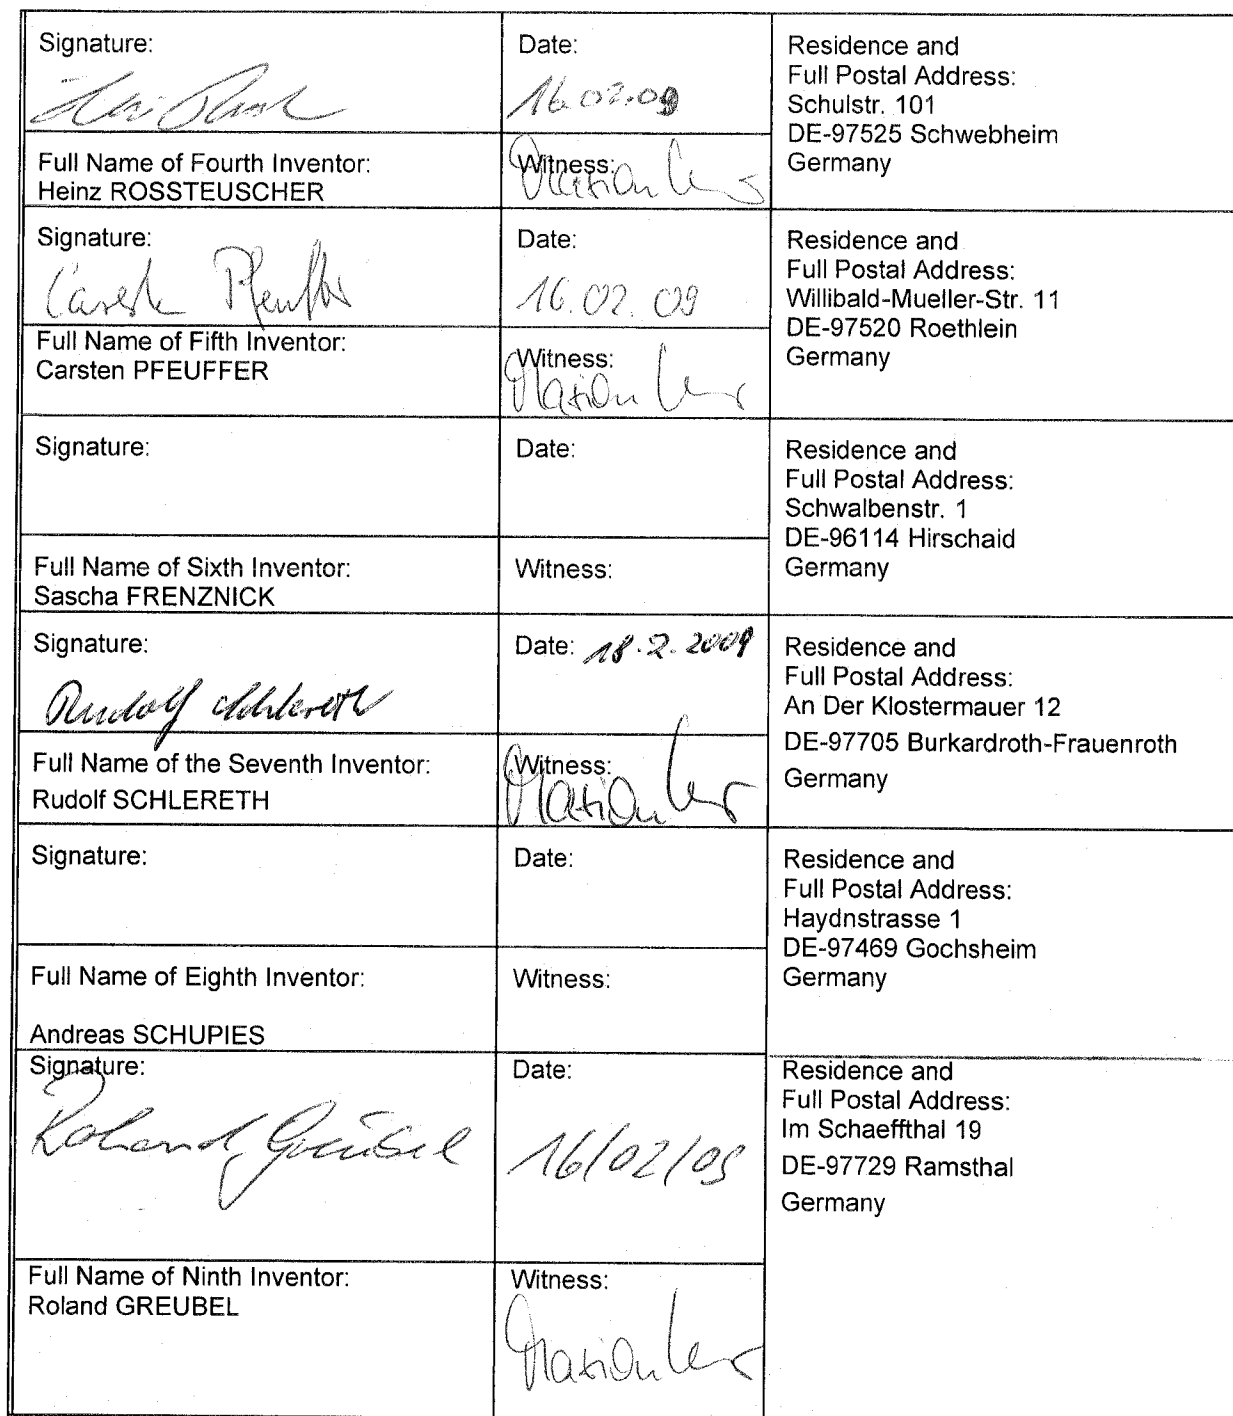 Signature:
Date:
16.02.09
Residence and
Full Postal Address:
Schulstr. 101
DE-97525 Schwebheim
Germany
Full Name of Fourth Inventor:
Heinz ROSSTEUSCHER
Witness:
Marion
Signature:
Carsten Pfeuffer
Date:
16.02.09
Residence and
Full Postal Address:
Willibald-Mueller-Str. 11
DE-97520 Roethlein
Germany
Full Name of Fifth Inventor:
Carsten PFEUFFER
Witness:
Marion
Signature:
Date:
Residence and
Full Postal Address:
Schwalbenstr. 1
DE-96114 Hirschaid
Germany
Full Name of Sixth Inventor:
Sascha FRENZNICK
Witness:
Signature:
Rudolf Schlereth
Date: 18.2.2009
Residence and
Full Postal Address:
An Der Klostermauer 12
DE-97705 Burkardroth-Frauenroth
Germany
Full Name of the Seventh Inventor:
Rudolf SCHLERETH
Witness:
Marion
Signature:
Date:
Residence and
Full Postal Address:
Haydnstrasse 1
DE-97469 Gochsheim
Germany
Full Name of Eighth Inventor:
Andreas SCHUPIES
Witness:
Signature:
Roland Greubel
Date:
16/02/09
Residence and
Full Postal Address:
Im Schaeffthal 19
DE-97729 Ramsthal
Germany
Full Name of Ninth Inventor:
Roland GREUBEL
Witness:
Marion